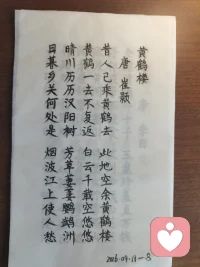 黄鹤楼
唐 崔颢
昔人已乘黄鹤去 此地空余黄鹤楼
黄鹤一去不复返 白云千载空悠悠
晴川历历汉阳树 芳草萋萋鹦鹉洲
日暮乡关何处是 烟波江上使人愁